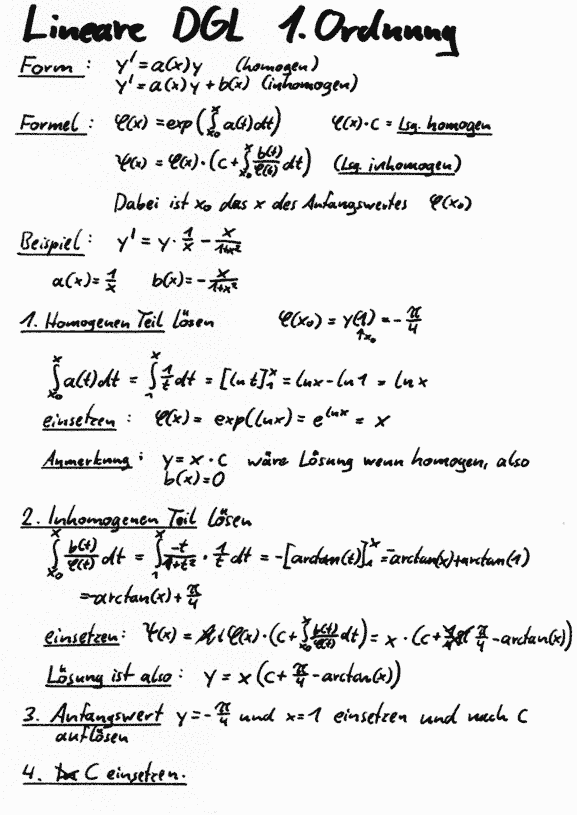 Lineare DGL 1. Ordnung
Form: y' = a(x)y (homogen)
y' = a(x)y + b(x) (inhomogen)
Formel: φ(x) = exp(∫_{x₀}^{x} a(t)dt) φ(x)·C = Lsg. homogen
Ψ(x) = φ(x)·(C + ∫_{x₀}^{x} b(t)/φ(t) dt) (Lsg. inhomogen)
Dabei ist x₀ das x des Anfangswertes φ(x₀)
Beispiel: y' = y · 1/x − x/(1+x²)
a(x) = 1/x b(x) = − x/(1+x²)
1. Homogenen Teil lösen φ(x₀) = y(1) = − π/4
↑x₀
∫_{x₀}^{x} a(t)dt = ∫_{1}^{x} 1/t dt = [ln t]_{1}^{x} = ln x − ln 1 = ln x
einsetzen: φ(x) = exp(ln x) = e^{ln x} = x
Anmerkung: y = x · C wäre Lösung wenn homogen, also
b(x) = 0
2. Inhomogenen Teil lösen
∫_{x₀}^{x} b(t)/φ(t) dt = ∫_{1}^{x} −t/(1+t²) · 1/t dt = −[arctan(t)]_{1}^{x} = −arctan(x) + arctan(1)
= −arctan(x) + π/4
einsetzen: Ψ(x) = φ(x)·(C + ∫_{x₀}^{x} b(t)/φ(t) dt) = x · (C + π/4 − arctan(x))
Lösung ist also: y = x (C + π/4 − arctan(x))
3. Anfangswert y = − π/4 und x = 1 einsetzen und nach C
auflösen
4. C einsetzen.